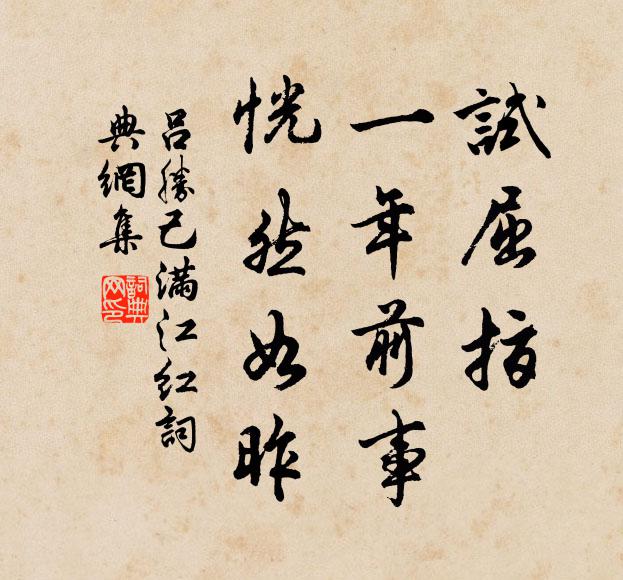 試屈指
一年前事
恍然如昨
呂勝己滿江紅詞
典網集
詞典網印